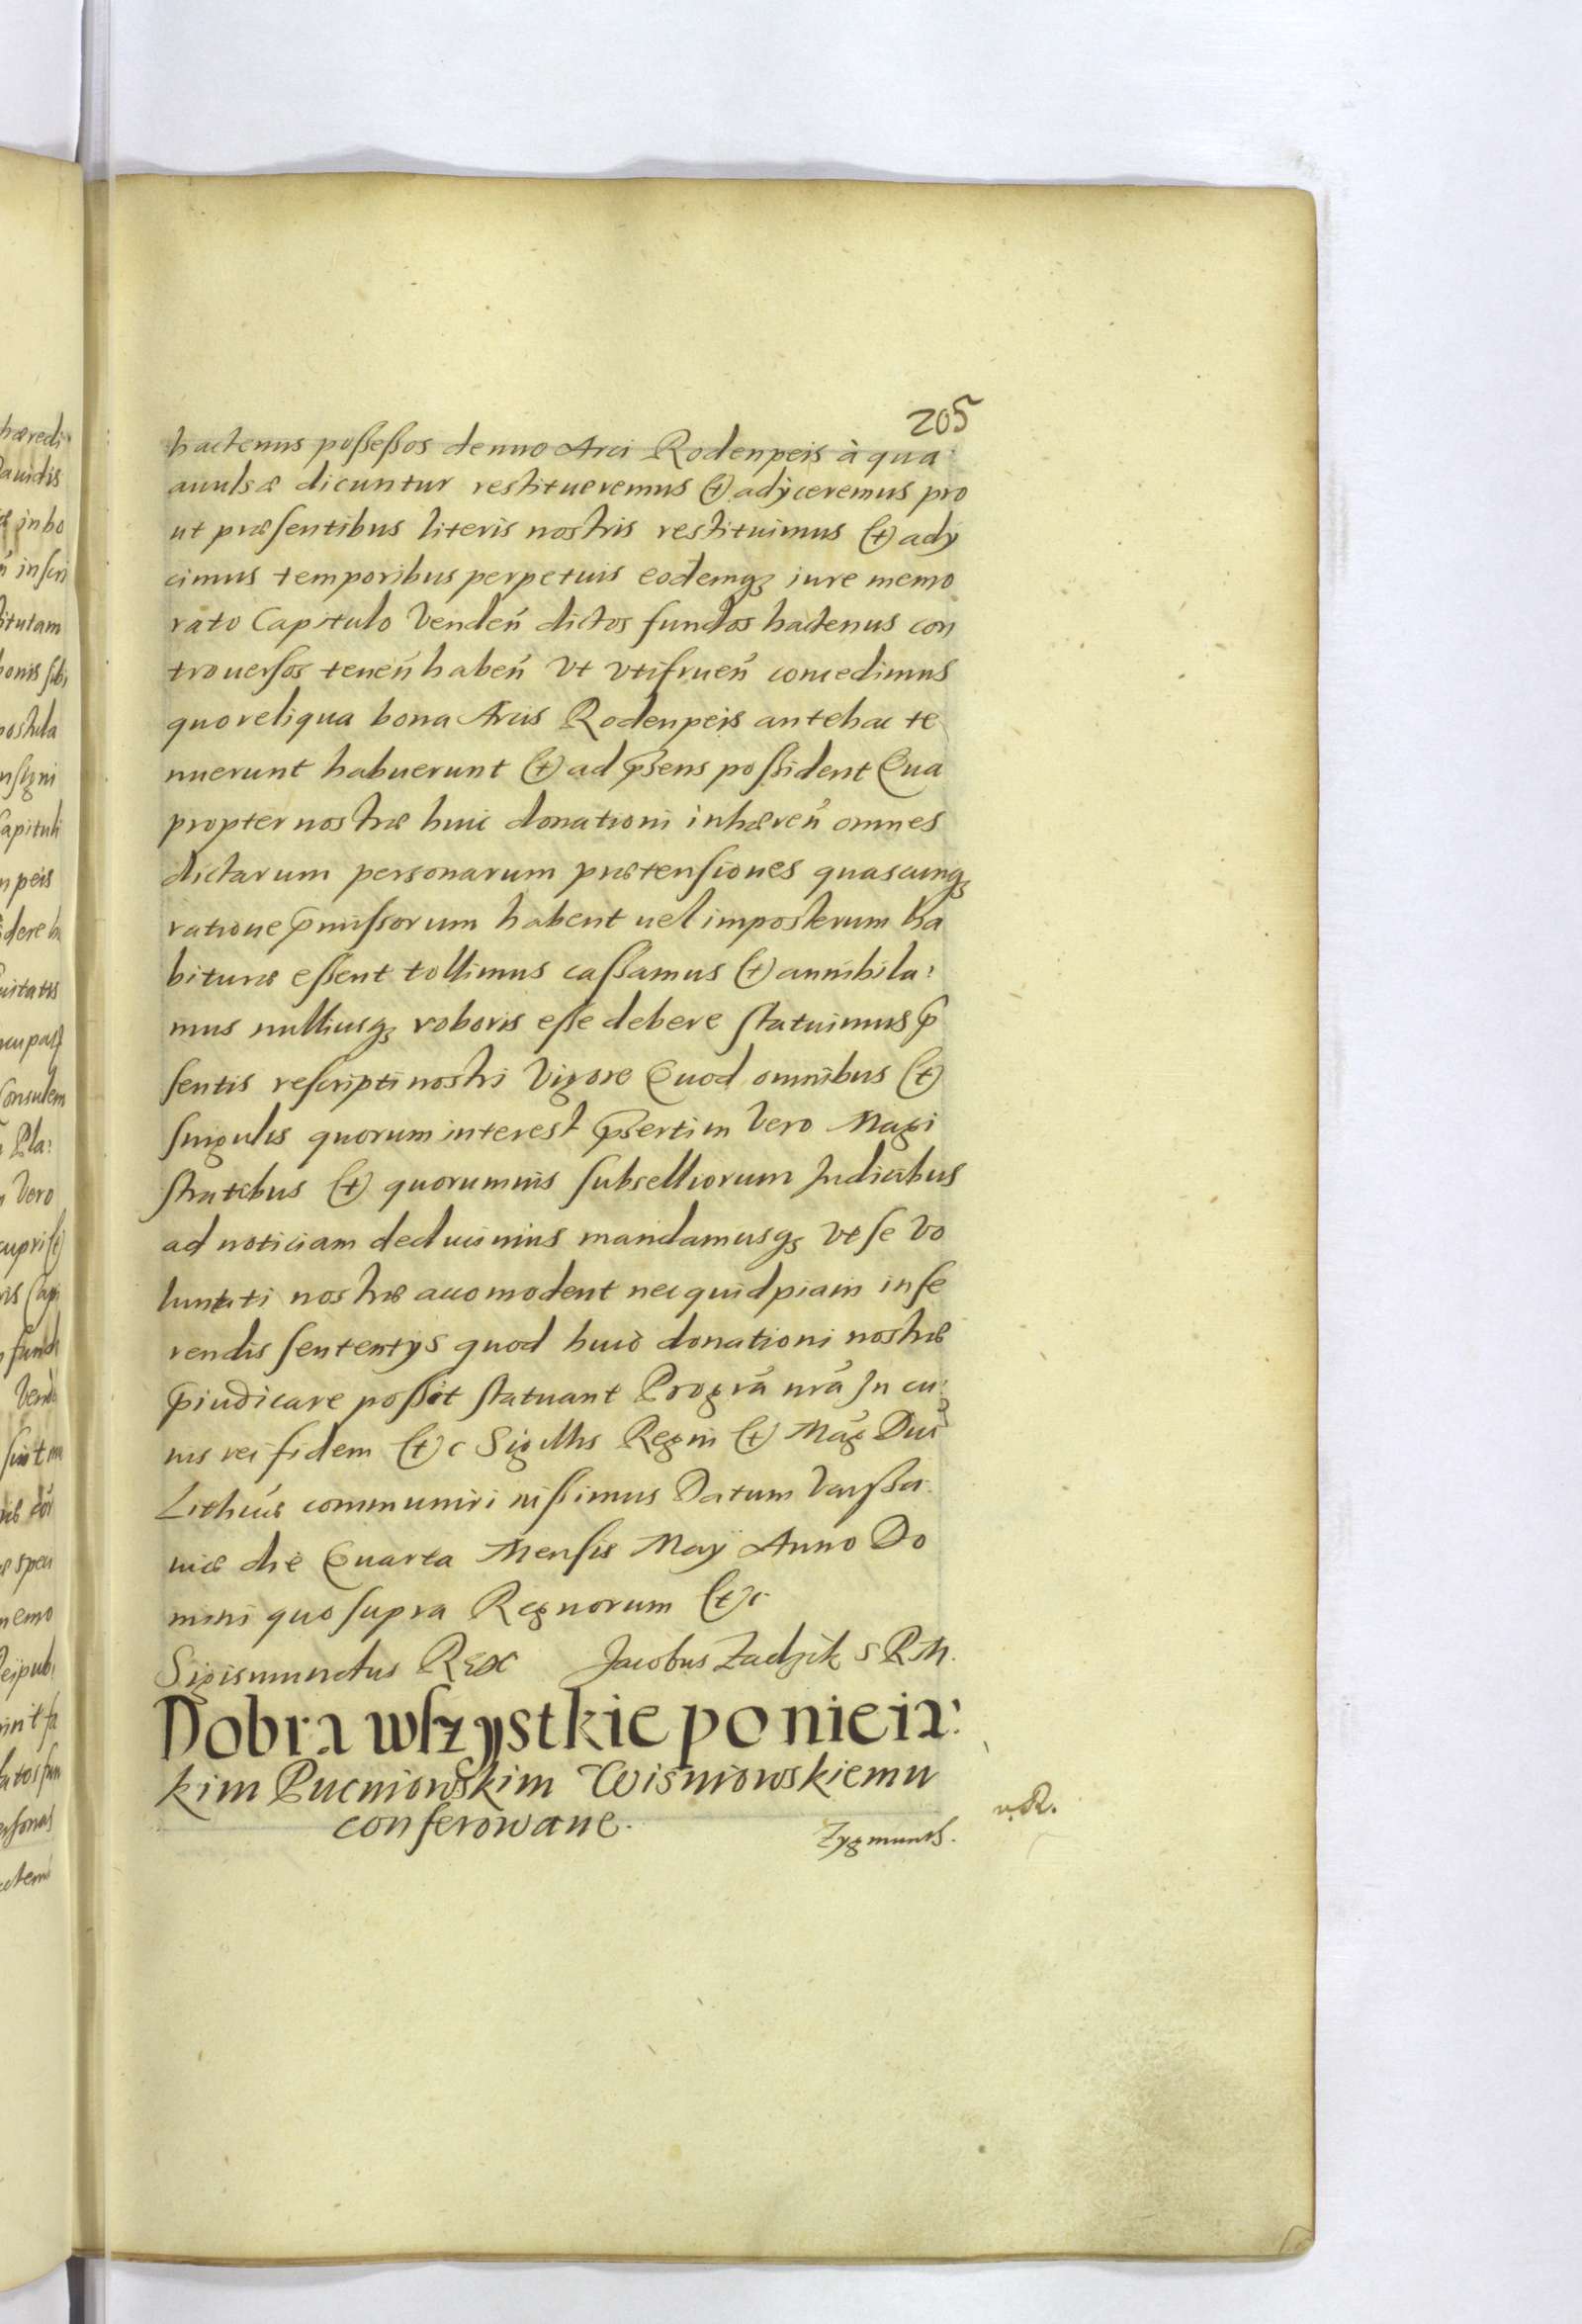 205
hactenus poßeßos denuo Arci Rodenpeis à qua
auulsæ dicuntur restitueremus (t) adÿceremus pro
ut præſentibus literis nostris restituimus (t) ady
cimus temporibus perpetuis eodemqȝ iure memo
rato Capitulo Venden̄ dictos fundos hactenus con
trouerſos tenen̄ haben̄ Vt vtifruen̄ concedimus
quo reliqua bona Arcis Rodenpeis antehac te
nuerunt habuerunt (t) ad p̄sens poſsident Qua
propter nostræ huic donationi inhæren̄ omnes
dictarum personarum prætenſiones quascunqȝ
ratione p̄miſsorum habent uel imposterum ha
bituræ eſsent tollimus caſsamus (t) annihila:
mus nulliusqȝ roboris eſse debere ſtatuimus p̄
ſentis reſcripti nostri Vigore Quod omnibus (t)
ſingulis quorum interest p̄sertim Vero Magi
ſtratibus (t) quorumuis ſubselliorum Judicibus
ad noticiam deducimus mandamusqȝ Vt ſe Vo
luntati nostræ accomodent nec quidpiam in fe
rendis ſententys quod huic donationi nostræ
p̄iudicare poſsit ſtatuant Pro gr̄a nr̄a In cu:
ius rei fidem (t)c Sigillis Regni (t) Mag̃ Duc̃
Lithuæ̃ communiri iuſsimus Datum Varſsa:
uiæ die Quarta Menſis Maÿ Anno Do
mini quo ſupra Regnorum (t)c
Sigismundus Rex Jacobus Zadzik S R M.
Dobra wſzystkie po nieia:
kim Pucniowskim Wisniowskiemu
conferowane.
Zygmunth.